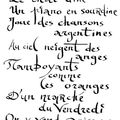 Un piano en sourdine
Joue des chansons
argentines
Au ciel neigent des
anges
Flamboyants
comme
les oranges
D'un marché
du Vendredi
On y vend